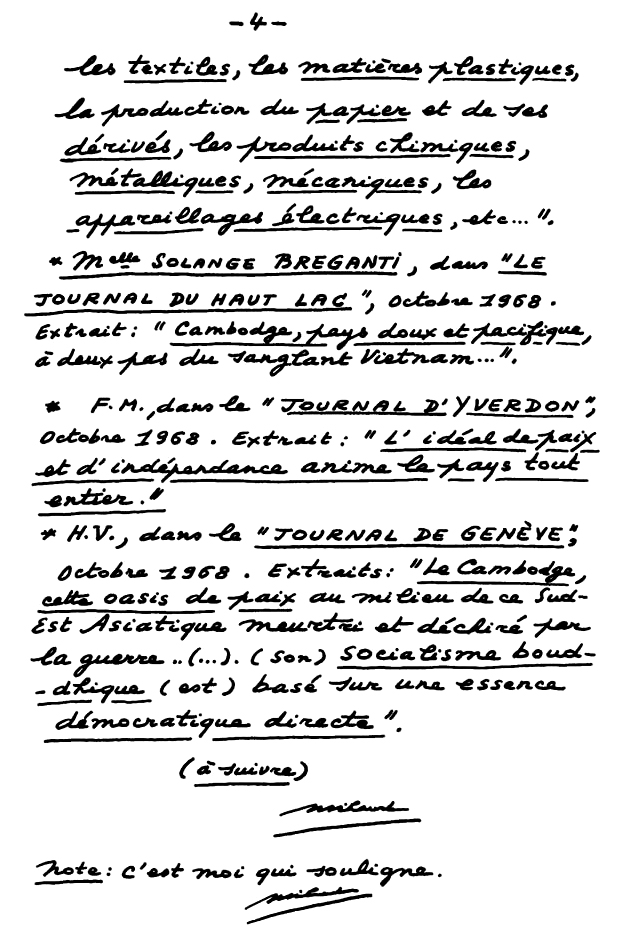 -4-
les textiles, les matières plastiques,
la production du papier et de ses
dérivés, les produits chimiques,
métalliques, mécaniques, les
appareillages électriques, etc...".
* Melle SOLANGE BREGANTI, dans "LE
JOURNAL DU HAUT LAC", Octobre 1968.
Extrait: "Cambodge, pays doux et pacifique,
à deux pas du sanglant Vietnam...".
* F.M., dans le "JOURNAL D'YVERDON",
Octobre 1968. Extrait: "L'idéal de paix
et d'indépendance anime le pays tout
entier."
* H.V., dans le "JOURNAL DE GENÈVE",
Octobre 1968. Extraits: "Le Cambodge,
cette oasis de paix au milieu de ce Sud-
Est Asiatique meurtri et déchiré par
la guerre ..(...). (Son) Socialisme boud-
-dhique (est) basé sur une essence
démocratique directe".
(à suivre)
Note: C'est moi qui souligne.